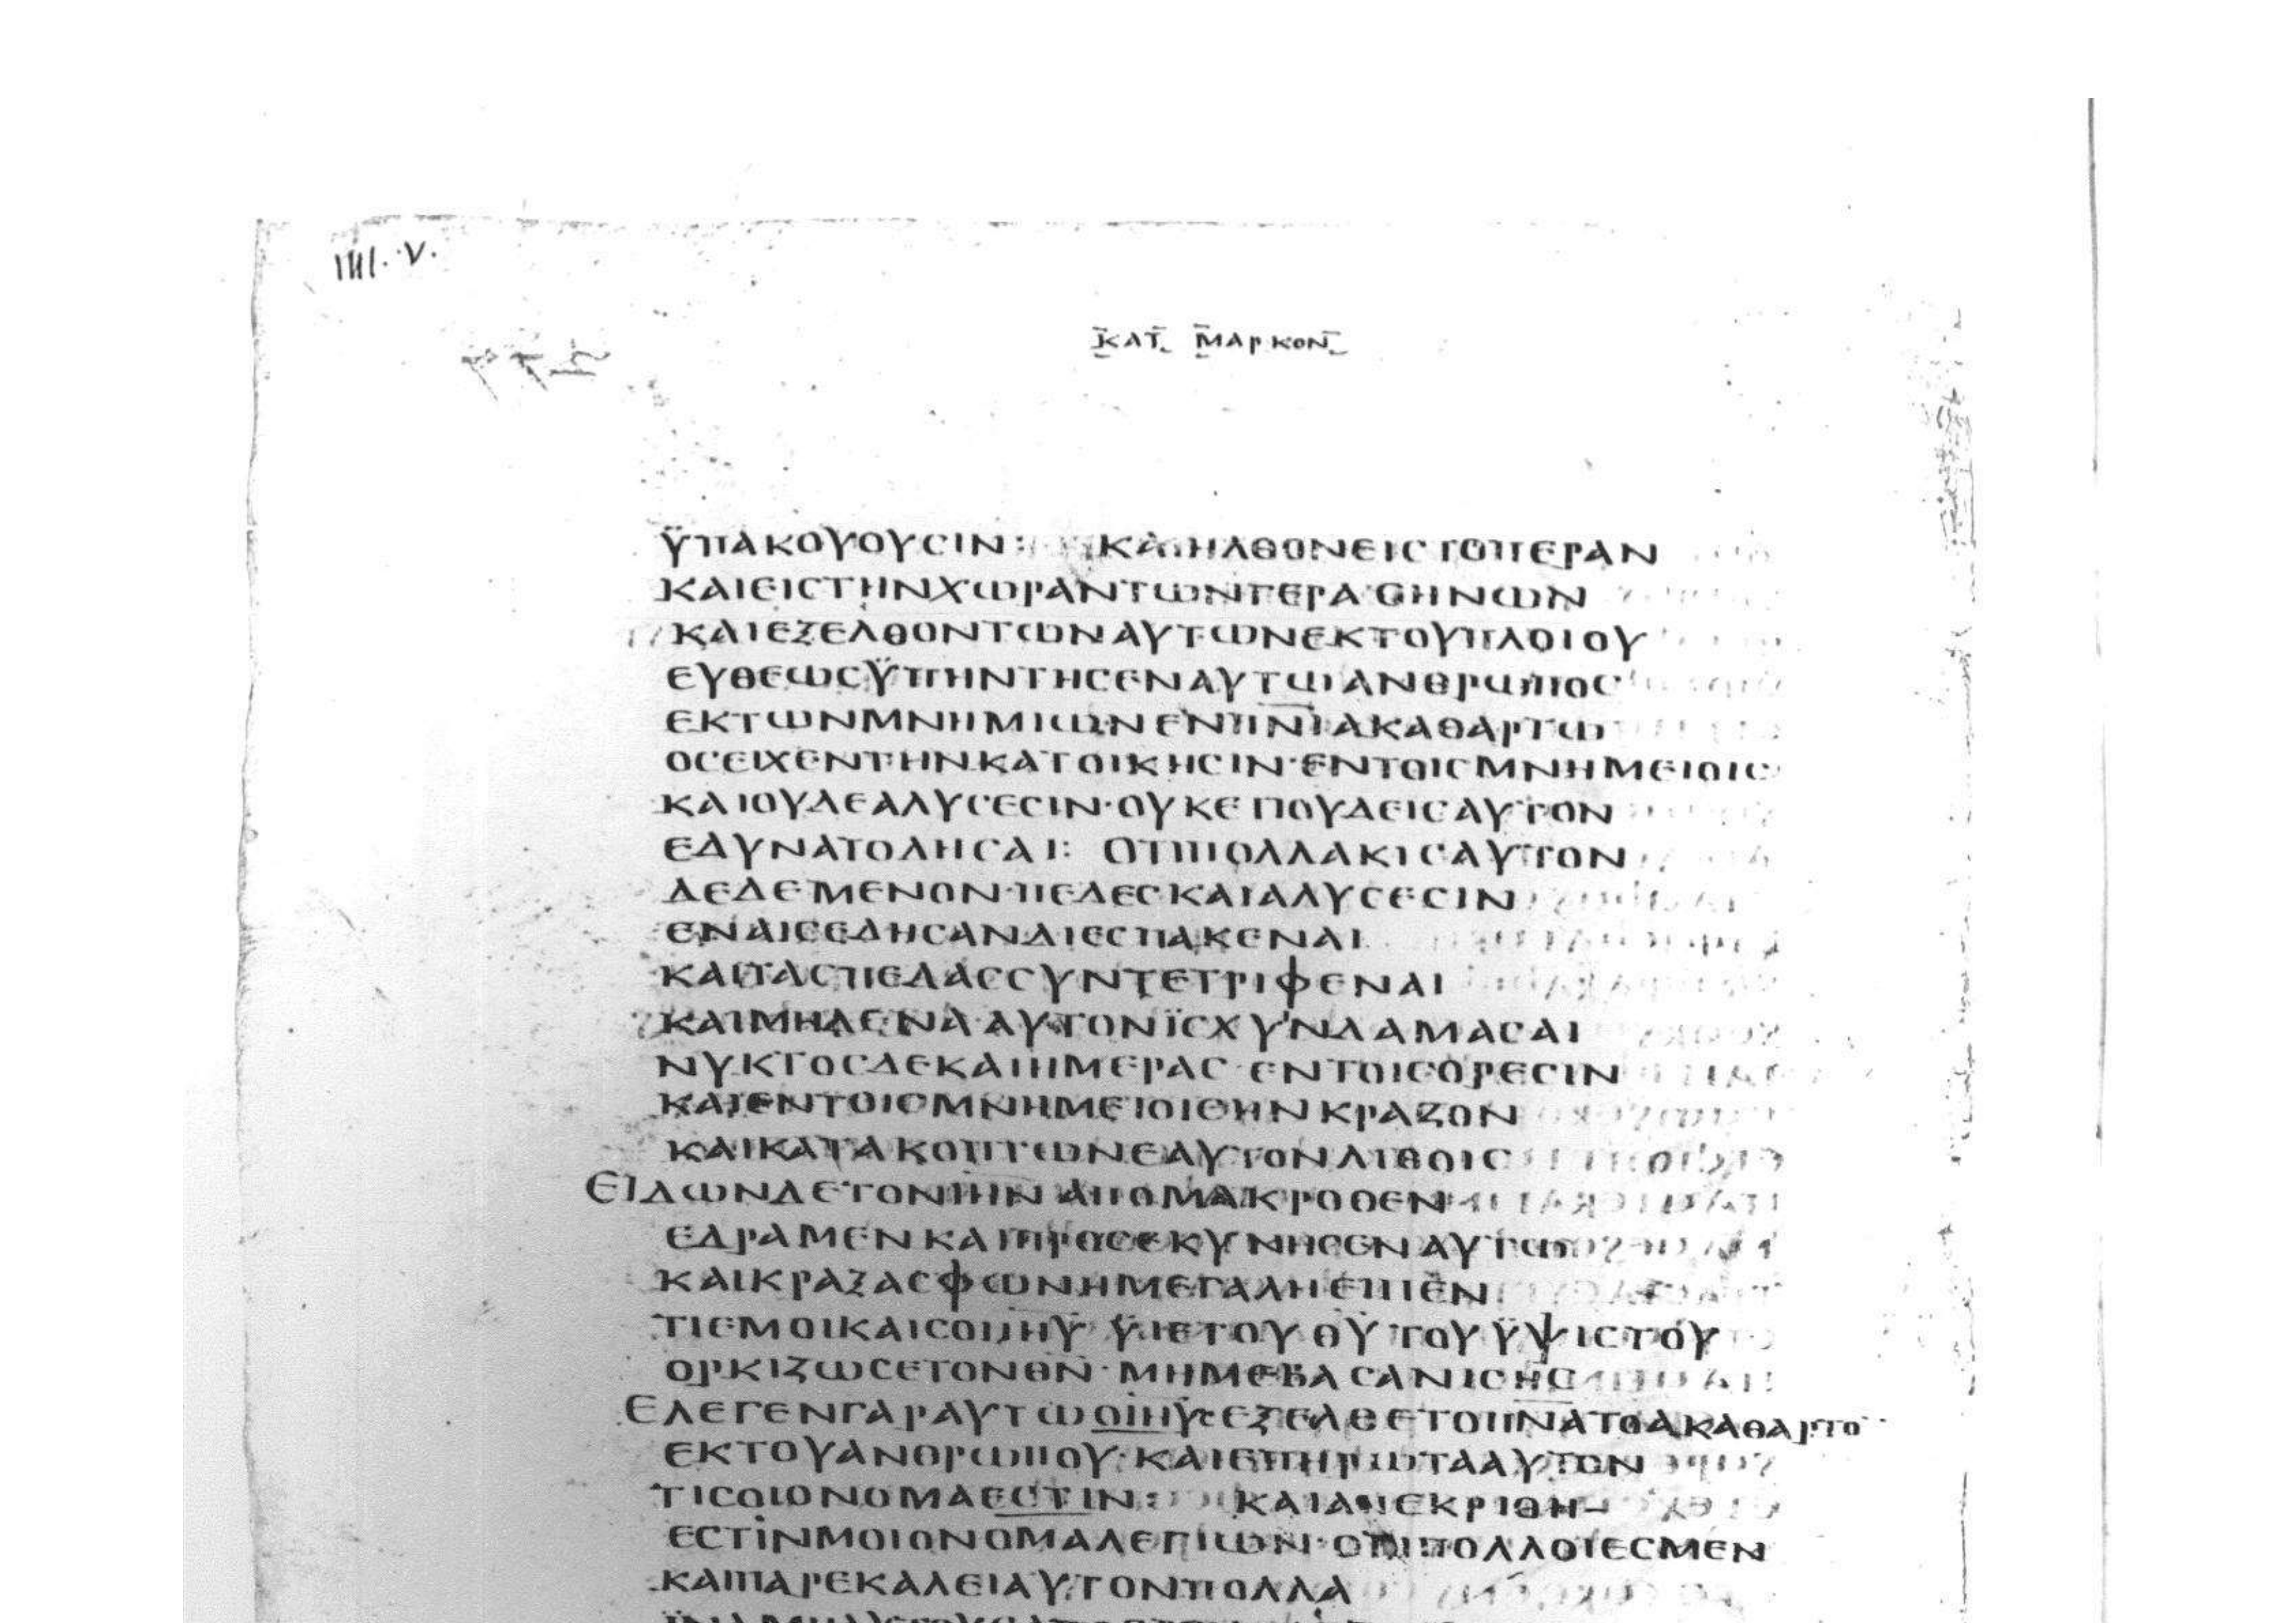 IIII. V.
ΚΑΤ ΜΑΡΚΟΝ
ΫΠΑΚΟΥΟΥCΙΝ: ΚΑΙΗΛΘΟΝΕΙCΤΟΠΕΡΑΝ
ΚΑΙΕΙCΤΗΝΧΩΡΑΝΤΩΝΓΕΡΑCΗΝΩΝ
ΚΑΙΕΞΕΛΘΟΝΤΩΝΑΥΤΩΝΕΚΤΟΥΠΛΟΙΟΥ
ΕΥΘΕΩCΫΠΗΝΤΗCΕΝΑΥΤΩΑΝΘΡΩΠΟC
ΕΚΤΩΝΜΝΗΜΙΩΝΕΝΠΝΙΑΚΑΘΑΡΤΩ
ΟCΕΙΧΕΝΤΗΝΚΑΤΟΙΚΗCΙΝ·ΕΝΤΟΙCΜΝΗΜΕΙΟΙC
ΚΑΙΟΥΔΕΑΛΥCΕCΙΝ·ΟΥΚΕΤΙΟΥΔΕΙCΑΥΤΟΝ
ΕΔΥΝΑΤΟΔΗCΑΙ: ΟΤΙΠΟΛΛΑΚΙCΑΥΤΟΝ
ΔΕΔΕΜΕΝΟΝ·ΠΕΔΕCΚΑΙΑΛΥCΕCΙΝ
ΕΝΑΙCΕΔΗCΑΝΔΙΕCΠΑΚΕΝΑΙ
ΚΑΙΤΑCΠΕΔΑCCΥΝΤΕΤΡΙΦΕΝΑΙ
ΚΑΙΜΗΔΕΝΑ·ΑΥΤΟΝΪCΧΥΝΔΑΜΑCΑΙ
ΝΥΚΤΟCΔΕΚΑΙΗΜΕΡΑC·ΕΝΤΟΙCΟΡΕCΙΝ
ΚΑΙΕΝΤΟΙCΜΝΗΜΕΙΟΙCΗΝΚΡΑΖΟΝ
ΚΑΙΚΑΤΑΚΟΠΤΩΝΕΑΥΤΟΝΛΙΘΟΙC
ΕΙΔΩΝΔΕΤΟΝΙΗΝ ΑΠΟΜΑΚΡΟΘΕΝ
ΕΔΡΑΜΕΝΚΑΙΠΡΟCΕΚΥΝΗCΕΝΑΥΤΩ
ΚΑΙΚΡΑΞΑCΦΩΝΗΜΕΓΑΛΗΕΙΠΕΝ
ΤΙΕΜΟΙΚΑΙCΟΙΙΗΥ ΫΙΕΤΟΥΘΥΤΟΥΫΨΙCΤΟΥ
ΟΡΚΙΖΩCΕΤΟΝΘΝ·ΜΗΜΕΒΑCΑΝΙCΗC
ΕΛΕΓΕΝΓΑΡΑΥΤΩΟΙΗC·ΕΞΕΛΘΕΤΟΠΝΑΤΟΑΚΑΘΑΡΤΟ
ΕΚΤΟΥΑΝΘΡΩΠΟΥ·ΚΑΙΕΠΗΡΩΤΑΑΥΤΟΝ
ΤΙCΟΙΟΝΟΜΑΕCΤΙΝ: ΚΑΙΑΠΕΚΡΙΘΗ
ΕCΤΙΝΜΟΙΟΝΟΜΑΛΕΓΙΩΝ·ΟΤΙΠΟΛΛΟΙΕCΜΕΝ
ΚΑΙΠΑΡΕΚΑΛΕΙΑΥΤΟΝΠΟΛΛΑ